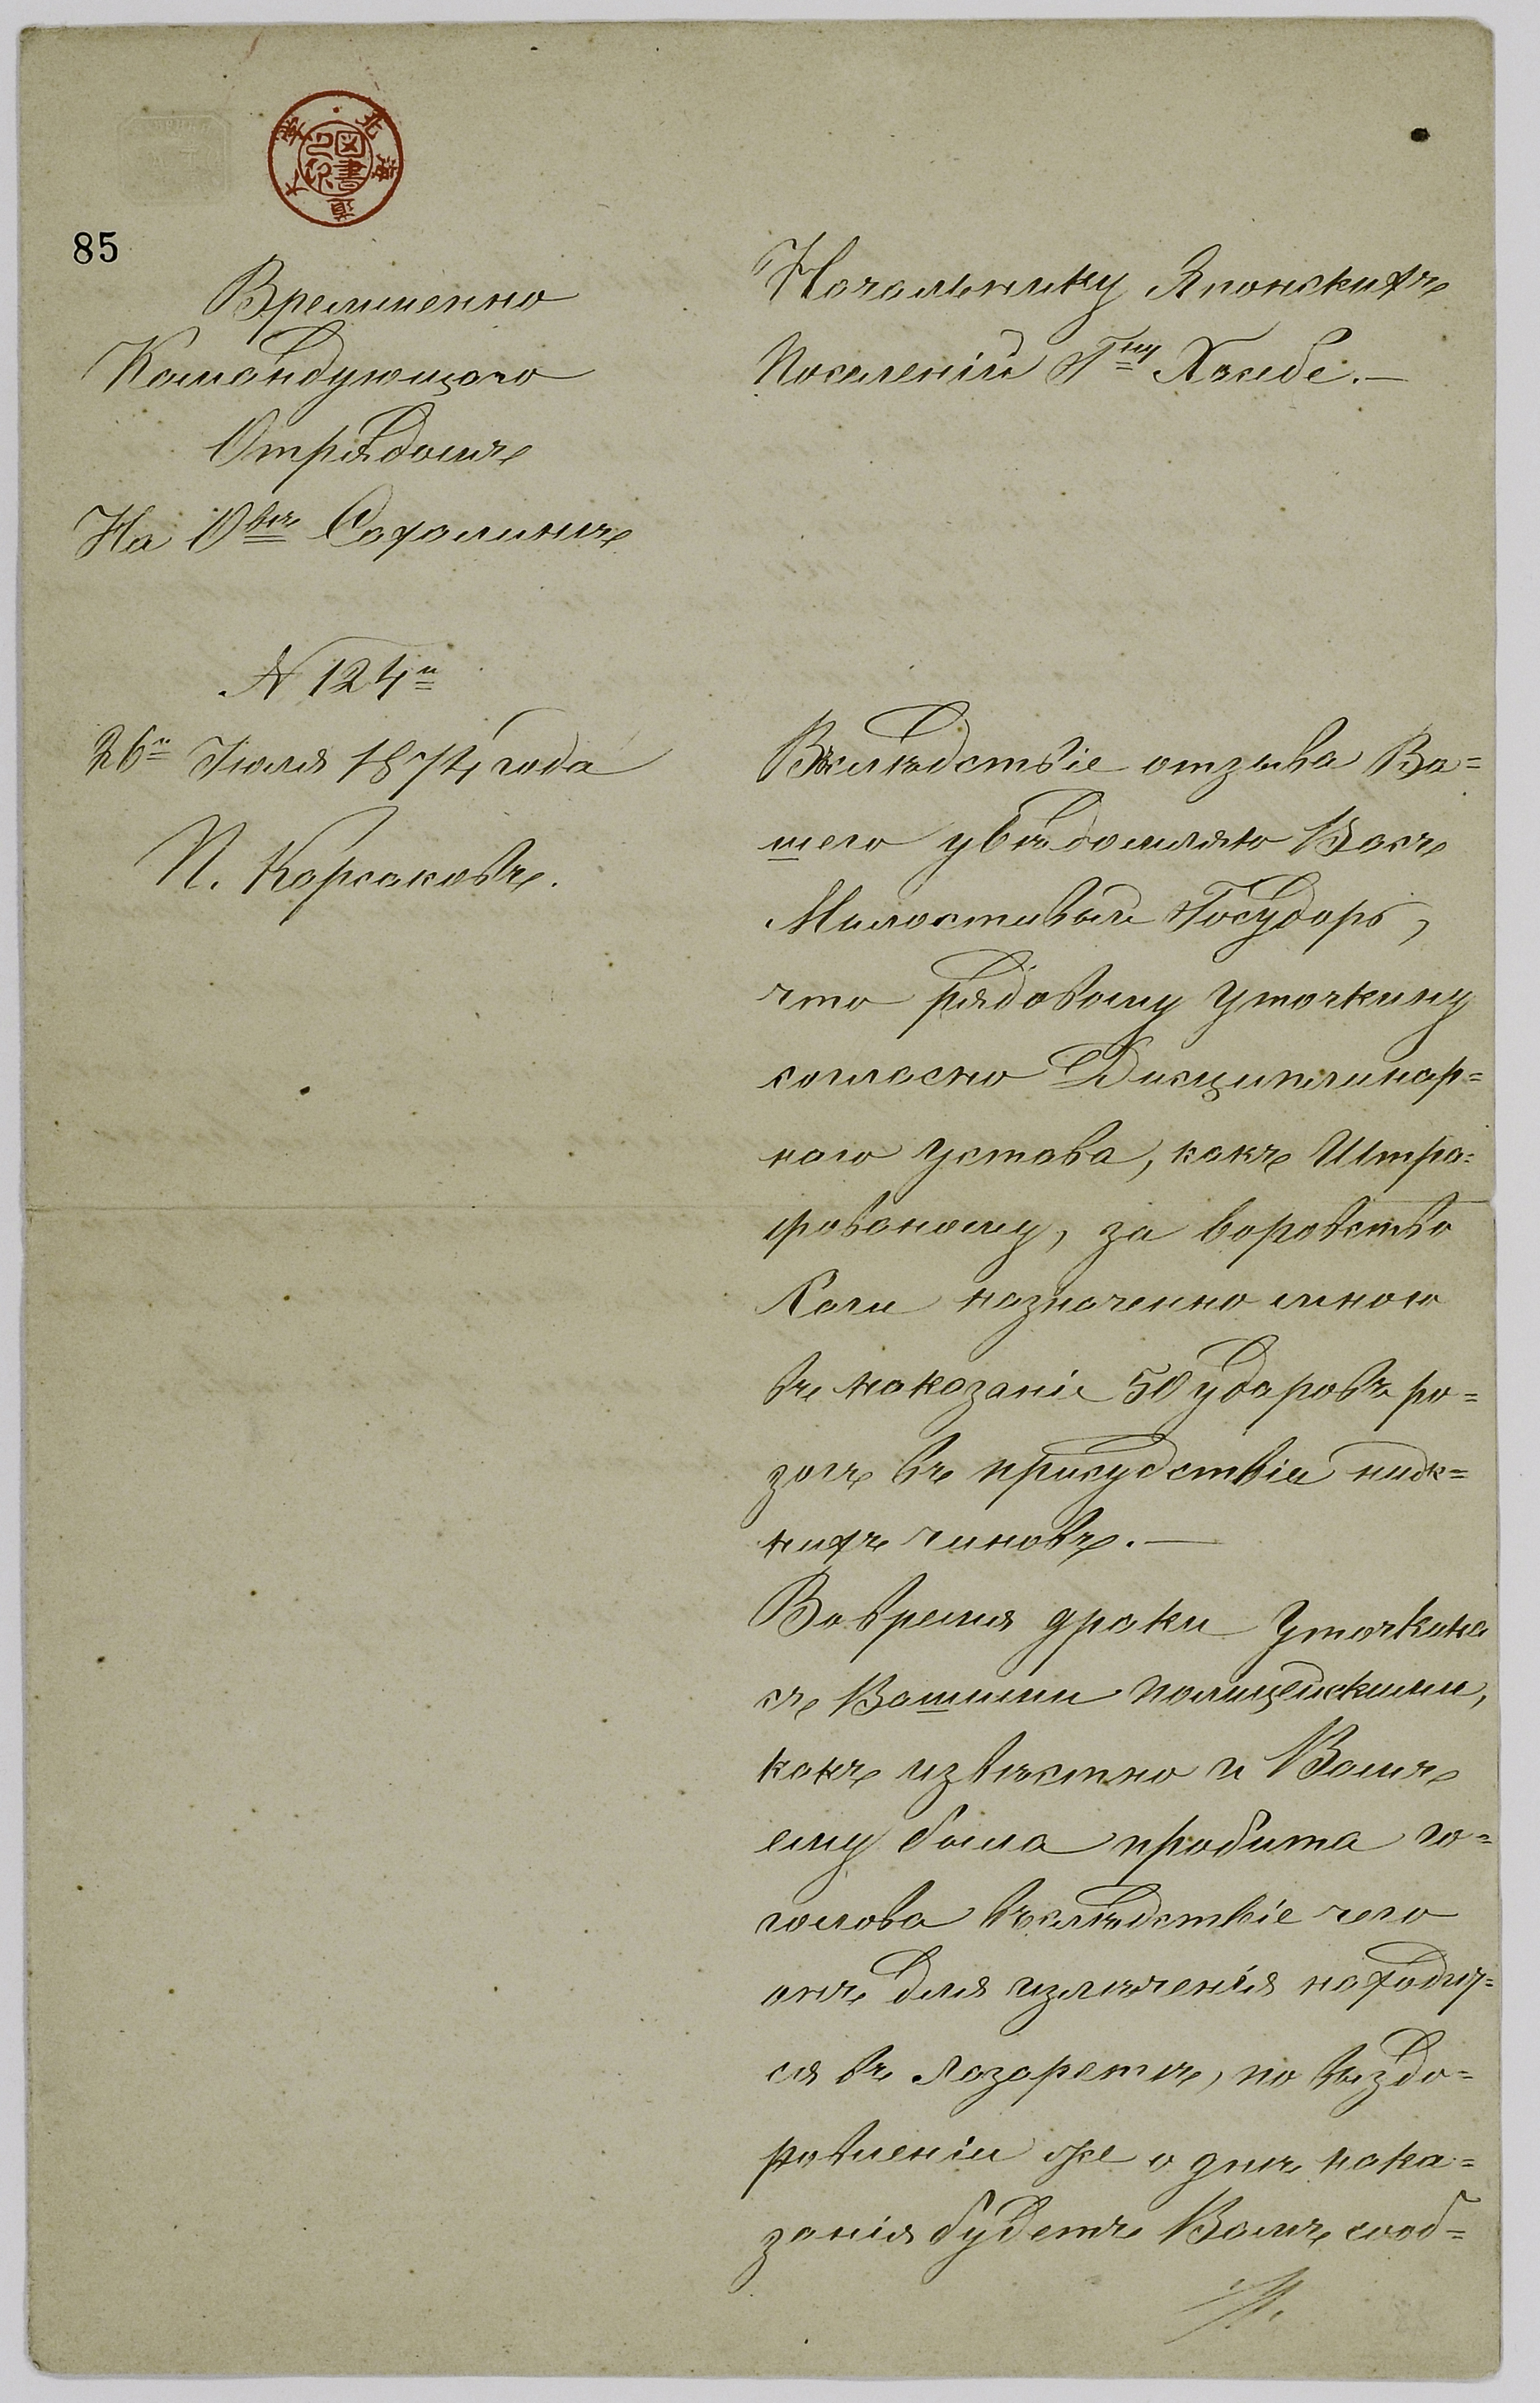 85
Временно
Командующаго
Отрядомъ
На О-вѣ Сахалинѣ
N 124й
26го Іюля 1874 года
П. Корсаковъ.
Начальнику Японскихъ
Поселеній Г-ну Хасебе.—
Вслѣдствіе отзыва Ва=
шего увѣдомляю Васъ
Милостивый Государь,
что рядовому Уточкину
согласно Дисциплинар=
наго Устава, какъ Штра=
фованому, за воровство
Саги назначенно мною
въ наказаніе 50 ударовъ ро=
зогъ въ присудствіи ниж=
нихъ чиновъ.—
Вовремя драки Уточкина
съ Вашими полицейскими,
какъ извѣстно и Вамъ
ему была пробита го=
лова вслѣдствіе чего
онъ для излѣченія находит=
ся въ Лазаретѣ, по выздо=
ровленіи же о днѣ нака=
занія будетъ Вамъ сооб=